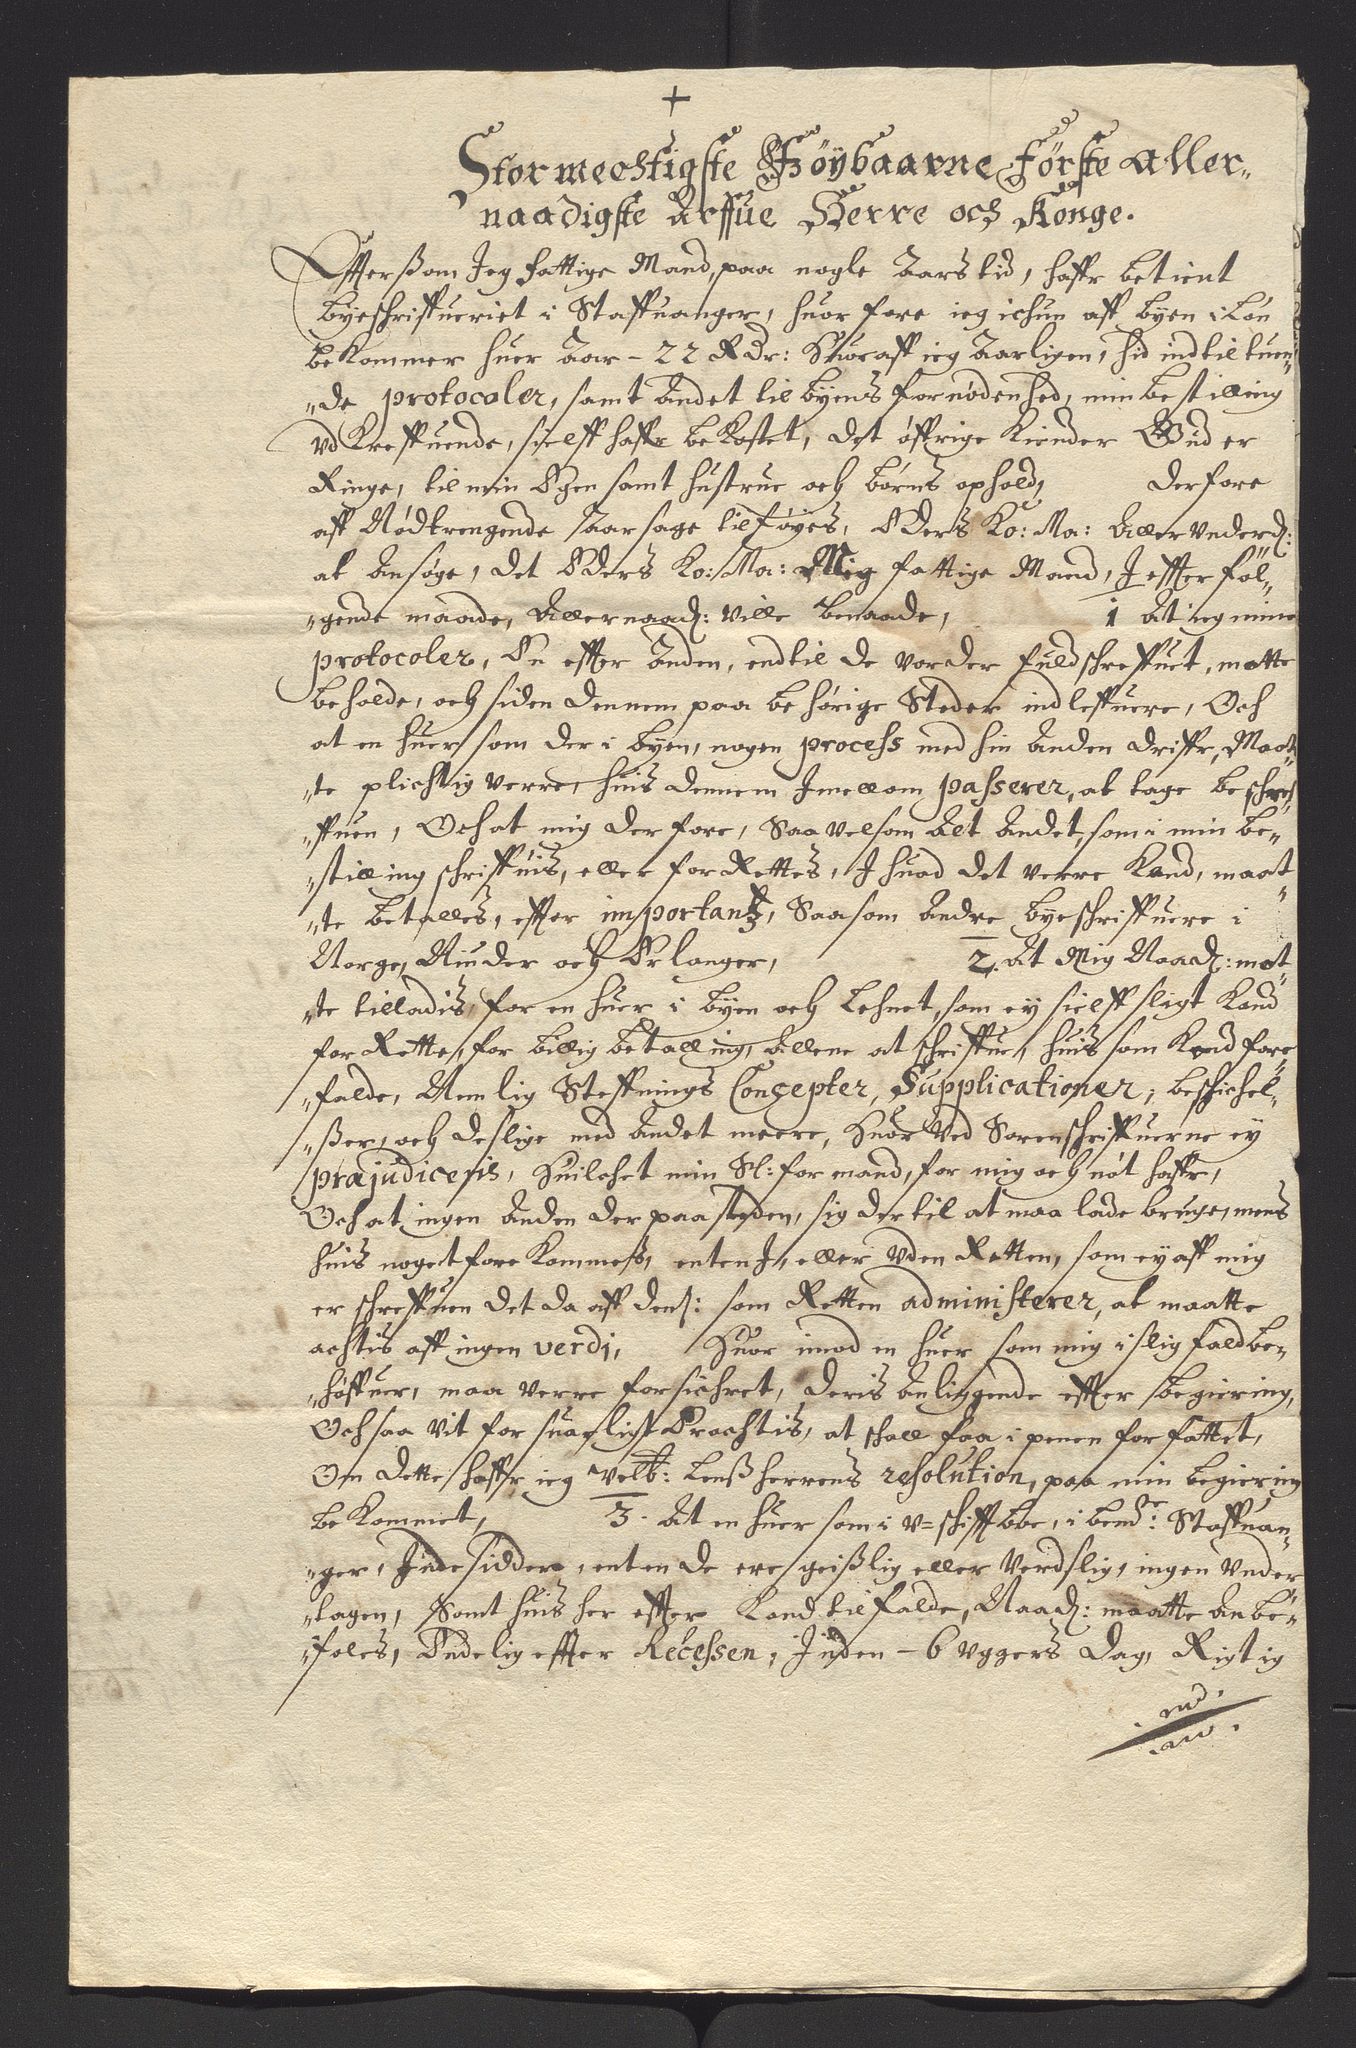 +
Stormechtigste Höybaarne Förste Aller-
naadigste Arffue Herre och Konge.
Effterßom Jeg fattige Mand, paa nogle Aars tid, haffr betient
byeschriffueriet i Staffuanger, huor fore ieg ichun aff byen i Lön
bekommer huer Aar - 22 Rdr: Huoraff ieg Aarligen, hid indtil tuen-
"de protocoler, samt Andet til byens fornödenhed, min bestilling
vdkreffuende, sielff haffr bekostet, det öffrige kiender Gud er
Ringe, til min Egen samt hustrue och börns ophold, Derfore
aff Nödtrengende Aarsage tilföyes, Eders Ko: Ma: Aller vnderd:
at Ansöge, det Eders Ko: Ma: Mig fattige Mand, J effter föl-
"gende maade, Allernaad: ville benaade, 1 At ieg mine
protocoler, En effter Anden, indtil de vorder fuldschreffuet, motte
beholde, och siden dennem paa behörige Steder indleffuere, Och
at en huer som der i byen, nogen process med hin Anden driffr, Maat-
"te plichtig verre, huis dennem Jmellom passerer, at tage beschreff-
"fuen, Och at mig der fore, Saa velsom Alt Andet, som i min be-
"stilling schriffuis, eller forRettes, J huad det verre kand, maat-
"te betalles, effter importantz, Saasom Andre byeschriffuere i
Norge, Niuder och Erlanger, 2. At Mig Naad: mot-
"te tilladis, for en huer i byen och Lehnet, som ey sielff sligt kand
forRette, for billig betalling, Allene at schriffue, huis som kand fore-
"falde, Nemlig Steffnings Concepter, Supplicationer, beschichel-
"ßer, och deslige med Andet meere, Huor ved Sorenschriffuerne ey
præjudiceris, Huilchet min Sl: formand, for mig och nöt haffr,
Och at ingen Anden der paa steden, sig der til at maa lade bruge, mens
huis noget fore kommes, enten J, eller vden Retten, som ey aff mig
er schreffuen det da aff dend: som Retten administerer, at maatte
achtis aff ingen verdj, Huor imod en huer som mig i slig fald be-
"höffuer, maa verre forsichret, deris Anliggende effter begiering,
Och saa vit forsuarligt Erachtis, at schall faa i penen forfattet,
Om dette haffr ieg velb: Lenßherrens resolution, paa min begiering
bekommet, 3. At en huer som i v=schifft boe, i bemte: Staffuan-
"ger, Jndesidder, enten de ere geistlig eller verdslig, ingen vnder-
"tagen, Samt huis her effter kand tilfalde, Naad: maatte Anbe-
"foles, Endelig effter Recessen, Jnden - 6 vggers dag, Rigtig